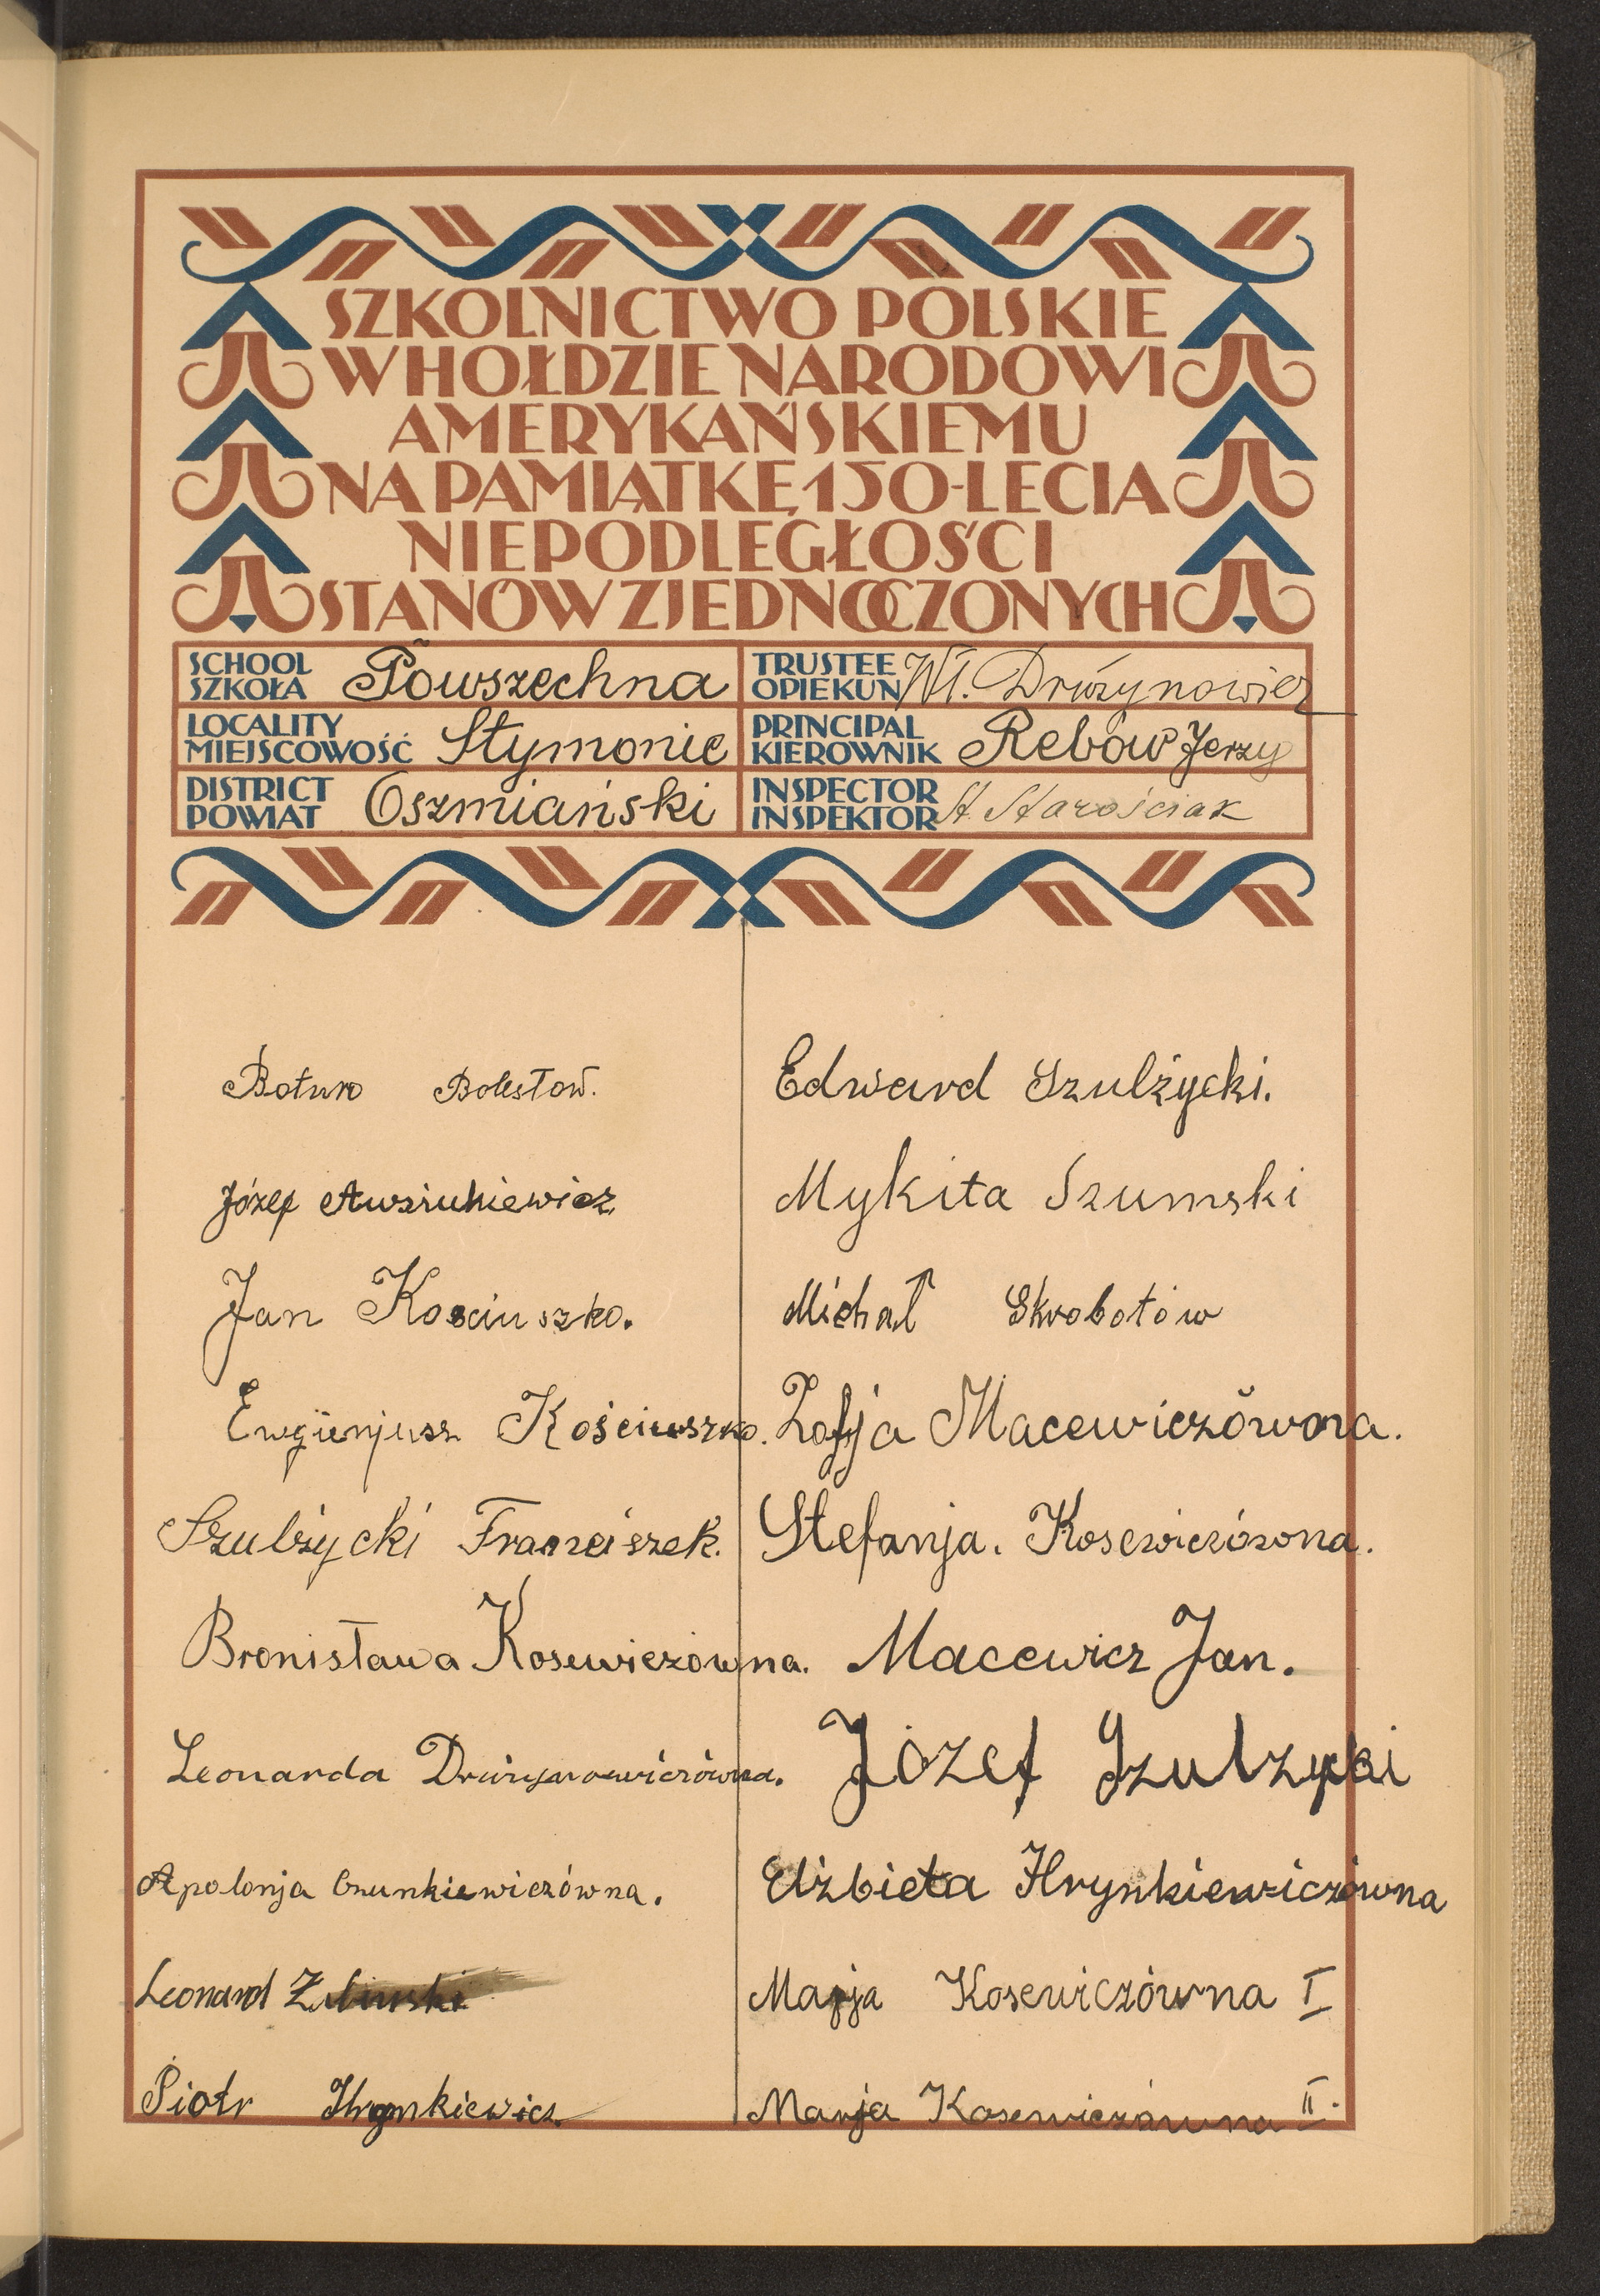 SZKOLNICTWO POLSKIE
W HOŁDZIE NARODOWI
AMERYKAŃSKIEMU
NA PAMIĄTKĘ 150-LECIA
NIEPODLEGŁOŚCI
STANÓW ZJEDNOCZONYCH
SCHOOL
SZKOŁA Powszechna
TRUSTEE
OPIEKUN Wł. Drużynowicz
LOCALITY
MIEJSCOWOŚĆ Stymonie
PRINCIPAL
KIEROWNIK Rebow Jerzy
DISTRICT
POWIAT Oszmiański
INSPECTOR
INSPEKTOR St. Starościak
Bolesław.
Józef Awsiukiewicz
Jan Kosciuszko.
Ewgienjusz Kościuszko.
Szulżycki Franciszek.
Bronisława Kosewiczówna.
Leonarda Drużynowiczówna.
Apolonja Czunkiewiczówna.
Leonard
Piotr Hrynkiewicz
Edward Szulżycki.
Mykita Szumski
Michał Skrobotów
Zofja Macewiczówna.
Stefanja. Kosewiczówna.
Macewicz Jan.
Józef Szulzycki
Elżbieta Hrynkiewiczówna
Marja Kosewiczówna I
Marja Kosewiczówna II.